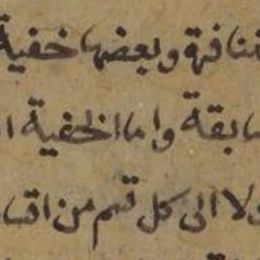 وبعضها خفية
سابقة واما الخفية ا
ولا الى كل قسم من اقسا